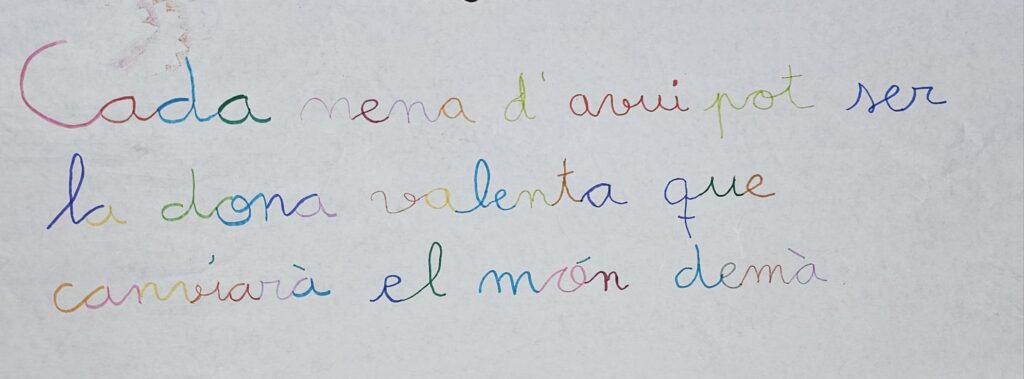 Cada nena d'avui pot ser
la dona valenta que
canviarà el món demà